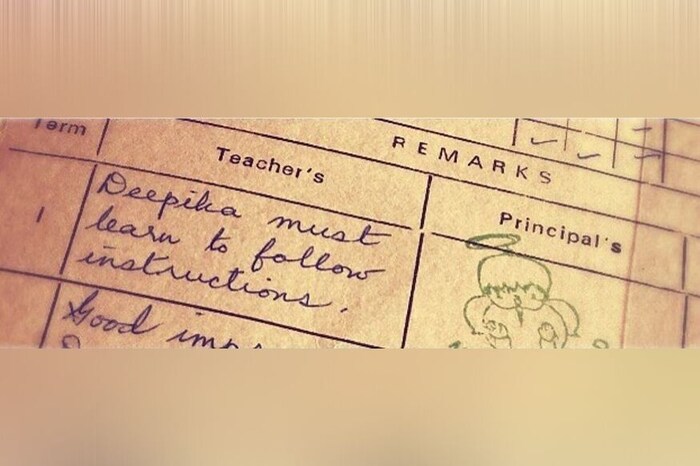 Term
REMARKS
Teacher's
Principal's
1
Deepika must
learn to follow
instructions.
Good